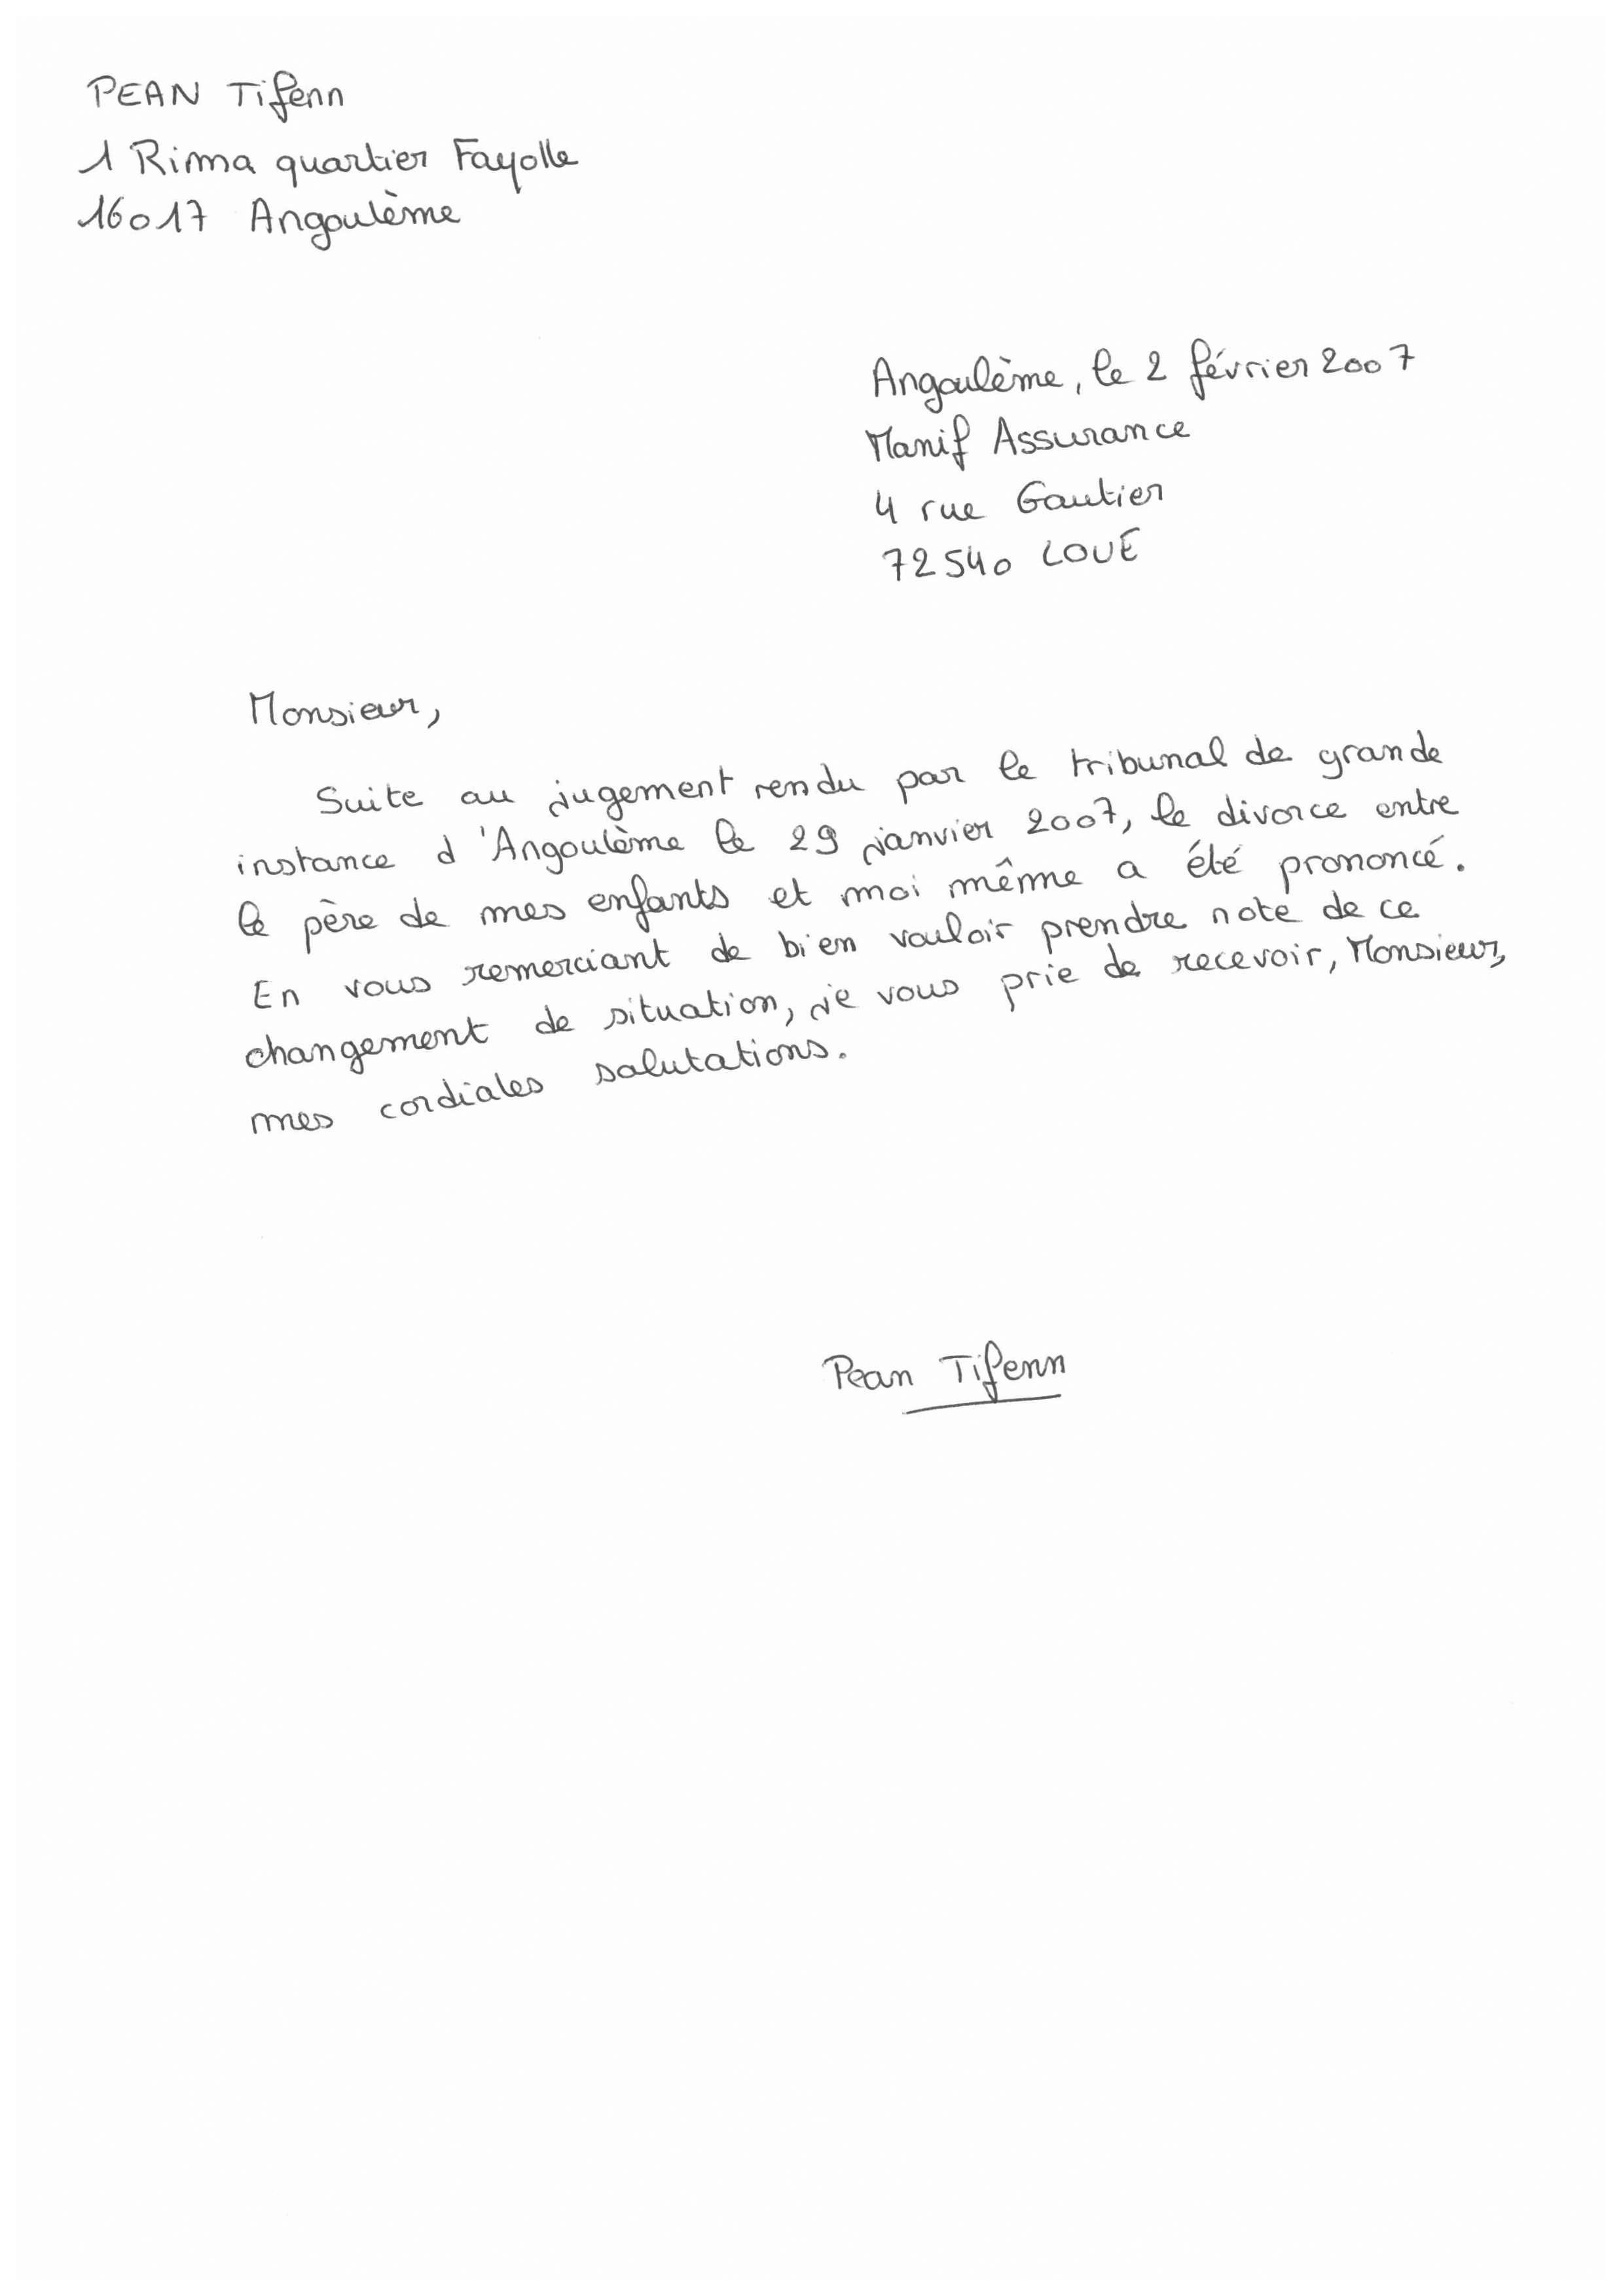 PEAN Tifenn
1 Rima quartier Fayolle
16017 Angoulème
Angoulème, le 2 février 2007
Manif Assurance
4 rue Gautier
72540 LOUÉ
Monsieur,
Suite au jugement rendu par le tribunal de grande
instance d'Angoulème le 29 janvier 2007, le divorce entre
le père de mes enfants et moi même a été prononcé.
En vous remerciant de bien vouloir prendre note de ce
changement de situation, je vous prie de recevoir, Monsieur,
mes cordiales salutations.
Pean Tifenn